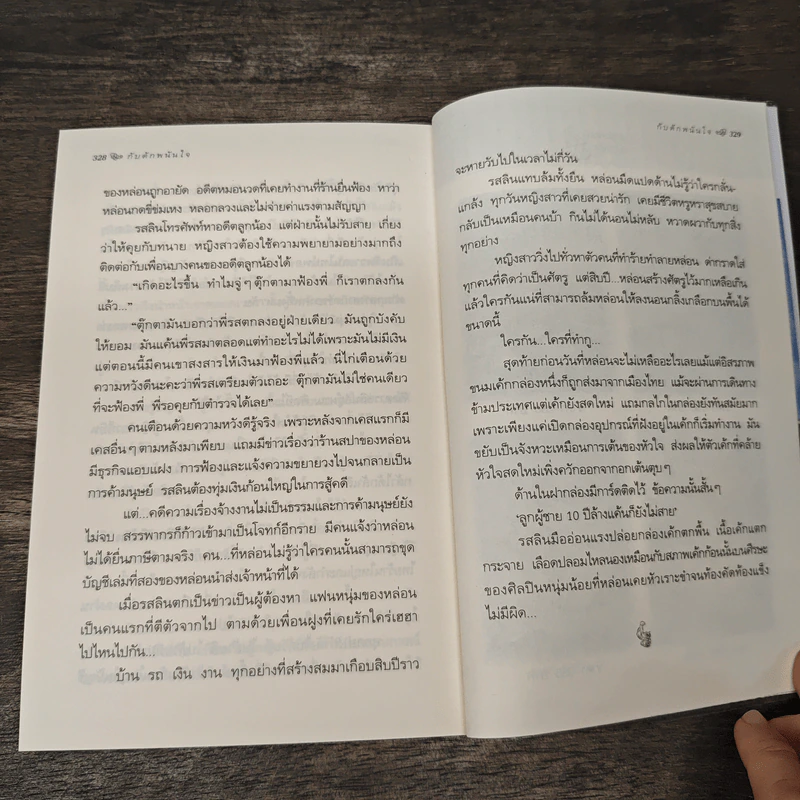 328 กับดักพนันใจ
ของหล่อนถูกอายัด อดีตหมอนวดที่เคยทำงานที่ร้านยื่นฟ้อง หาว่า
หล่อนกดขี่ข่มเหง หลอกลวงและไม่จ่ายค่าแรงตามสัญญา
รสลินโทรศัพท์หาอดีตลูกน้อง แต่ฝ่ายนั้นไม่รับสาย เกี่ยง
ว่าให้คุยกับทนาย หญิงสาวต้องใช้ความพยายามอย่างมากถึง
ติดต่อกับเพื่อนบางคนของอดีตลูกน้องได้
“เกิดอะไรขึ้น ทำไมจู่ๆ ตุ๊กตามาฟ้องพี่ ก็เราตกลงกัน
แล้ว...”
“ตุ๊กตามันบอกว่าพี่รสตกลงอยู่ฝ่ายเดียว มันถูกบังคับ
ให้ยอม มันแค้นพี่รสมาตลอดแต่ทำอะไรไม่ได้เพราะมันไม่มีเงิน
แต่ตอนนี้มีคนเขาสงสารให้เงินมาฟ้องพี่แล้ว นี่ไก่เตือนด้วย
ความหวังดีนะคะว่าพี่รสเตรียมตัวเถอะ ตุ๊กตามันไม่ใช่คนเดียว
ที่จะฟ้องพี่ พี่รอคุยกับตำรวจได้เลย”
คนเตือนด้วยความหวังดีรู้จริง เพราะหลังจากเคสแรกก็มี
เคสอื่นๆ ตามหลังมาเพียบ แถมมีข่าวเรื่องว่าร้านสปาของหล่อน
มีธุรกิจแอบแฝง การฟ้องและแจ้งความขยายวงไปจนกลายเป็น
การค้ามนุษย์ รสลินต้องทุ่มเงินก้อนใหญ่ในการสู้คดี
แต่...คดีความเรื่องจ้างงานไม่เป็นธรรมและการค้ามนุษย์ยัง
ไม่จบ สรรพากรก็ก้าวเข้ามาเป็นโจทก์อีกราย มีคนแจ้งว่าหล่อน
ไม่ได้ยื่นภาษีตามจริง คน...ที่หล่อนไม่รู้ว่าใครคนนั้นสามารถขุด
บัญชีเล่มที่สองของหล่อนนำส่งเจ้าหน้าที่ได้
เมื่อรสลินตกเป็นข่าวเป็นผู้ต้องหา แฟนหนุ่มของหล่อน
เป็นคนแรกที่ตีตัวจากไป ตามด้วยเพื่อนฝูงที่เคยรักใคร่เฮฮา
ไปไหนไปกัน...
บ้าน รถ เงิน งาน ทุกอย่างที่สร้างสมมาเกือบสิบปีราว
กับดักพนันใจ 329
จะหายวับไปในเวลาไม่กี่วัน
รสลินแทบล้มทั้งยืน หล่อนมืดแปดด้านไม่รู้ว่าใครกลั่น-
แกล้ง ทุกวันหญิงสาวที่เคยสวยน่ารัก เคยมีชีวิตหรูหราสุขสบาย
กลับเป็นเหมือนคนบ้า กินไม่ได้นอนไม่หลับ หวาดผวากับทุกสิ่ง
ทุกอย่าง
หญิงสาววิ่งไปทั่วหาตัวคนที่ทำร้ายทำลายหล่อน ด่ากราดใส่
ทุกคนที่คิดว่าเป็นศัตรู แต่สิบปี...หล่อนสร้างศัตรูไว้มากเหลือเกิน
แล้วใครกันแน่ที่สามารถล้มหล่อนให้ลงนอนกลิ้งเกลือกบนพื้นได้
ขนาดนี้
ใครกัน...ใครที่ทำกู...
สุดท้ายก่อนวันที่หล่อนจะไม่เหลืออะไรเลยแม้แต่อิสรภาพ
ขนมเค้กกล่องหนึ่งก็ถูกส่งมาจากเมืองไทย แม้จะผ่านการเดินทาง
ข้ามประเทศแต่เค้กยังสดใหม่ แถมกลไกในกล่องยังทันสมัยมาก
เพราะเพียงแค่เปิดกล่องอุปกรณ์ที่ฝังอยู่ในเค้กก็เริ่มทำงาน มัน
ขยับเป็นจังหวะเหมือนการเต้นของหัวใจ ส่งผลให้ตัวเค้กที่คล้าย
หัวใจสดใหม่เพิ่งควักออกจากอกเต้นตุบๆ
ด้านในฝากล่องมีการ์ดติดไว้ ข้อความนั้นสั้นๆ
‘ลูกผู้ชาย 10 ปีล้างแค้นก็ยังไม่สาย’
รสลินมืออ่อนแรงปล่อยกล่องเค้กตกพื้น เนื้อเค้กแตก
กระจาย เลือดปลอมไหลนองเหมือนกับสภาพเค้กก้อนนั้นบนศีรษะ
ของศิลปินหนุ่มน้อยที่หล่อนเคยหัวเราะขำจนท้องคัดท้องแข็ง
ไม่มีผิด...